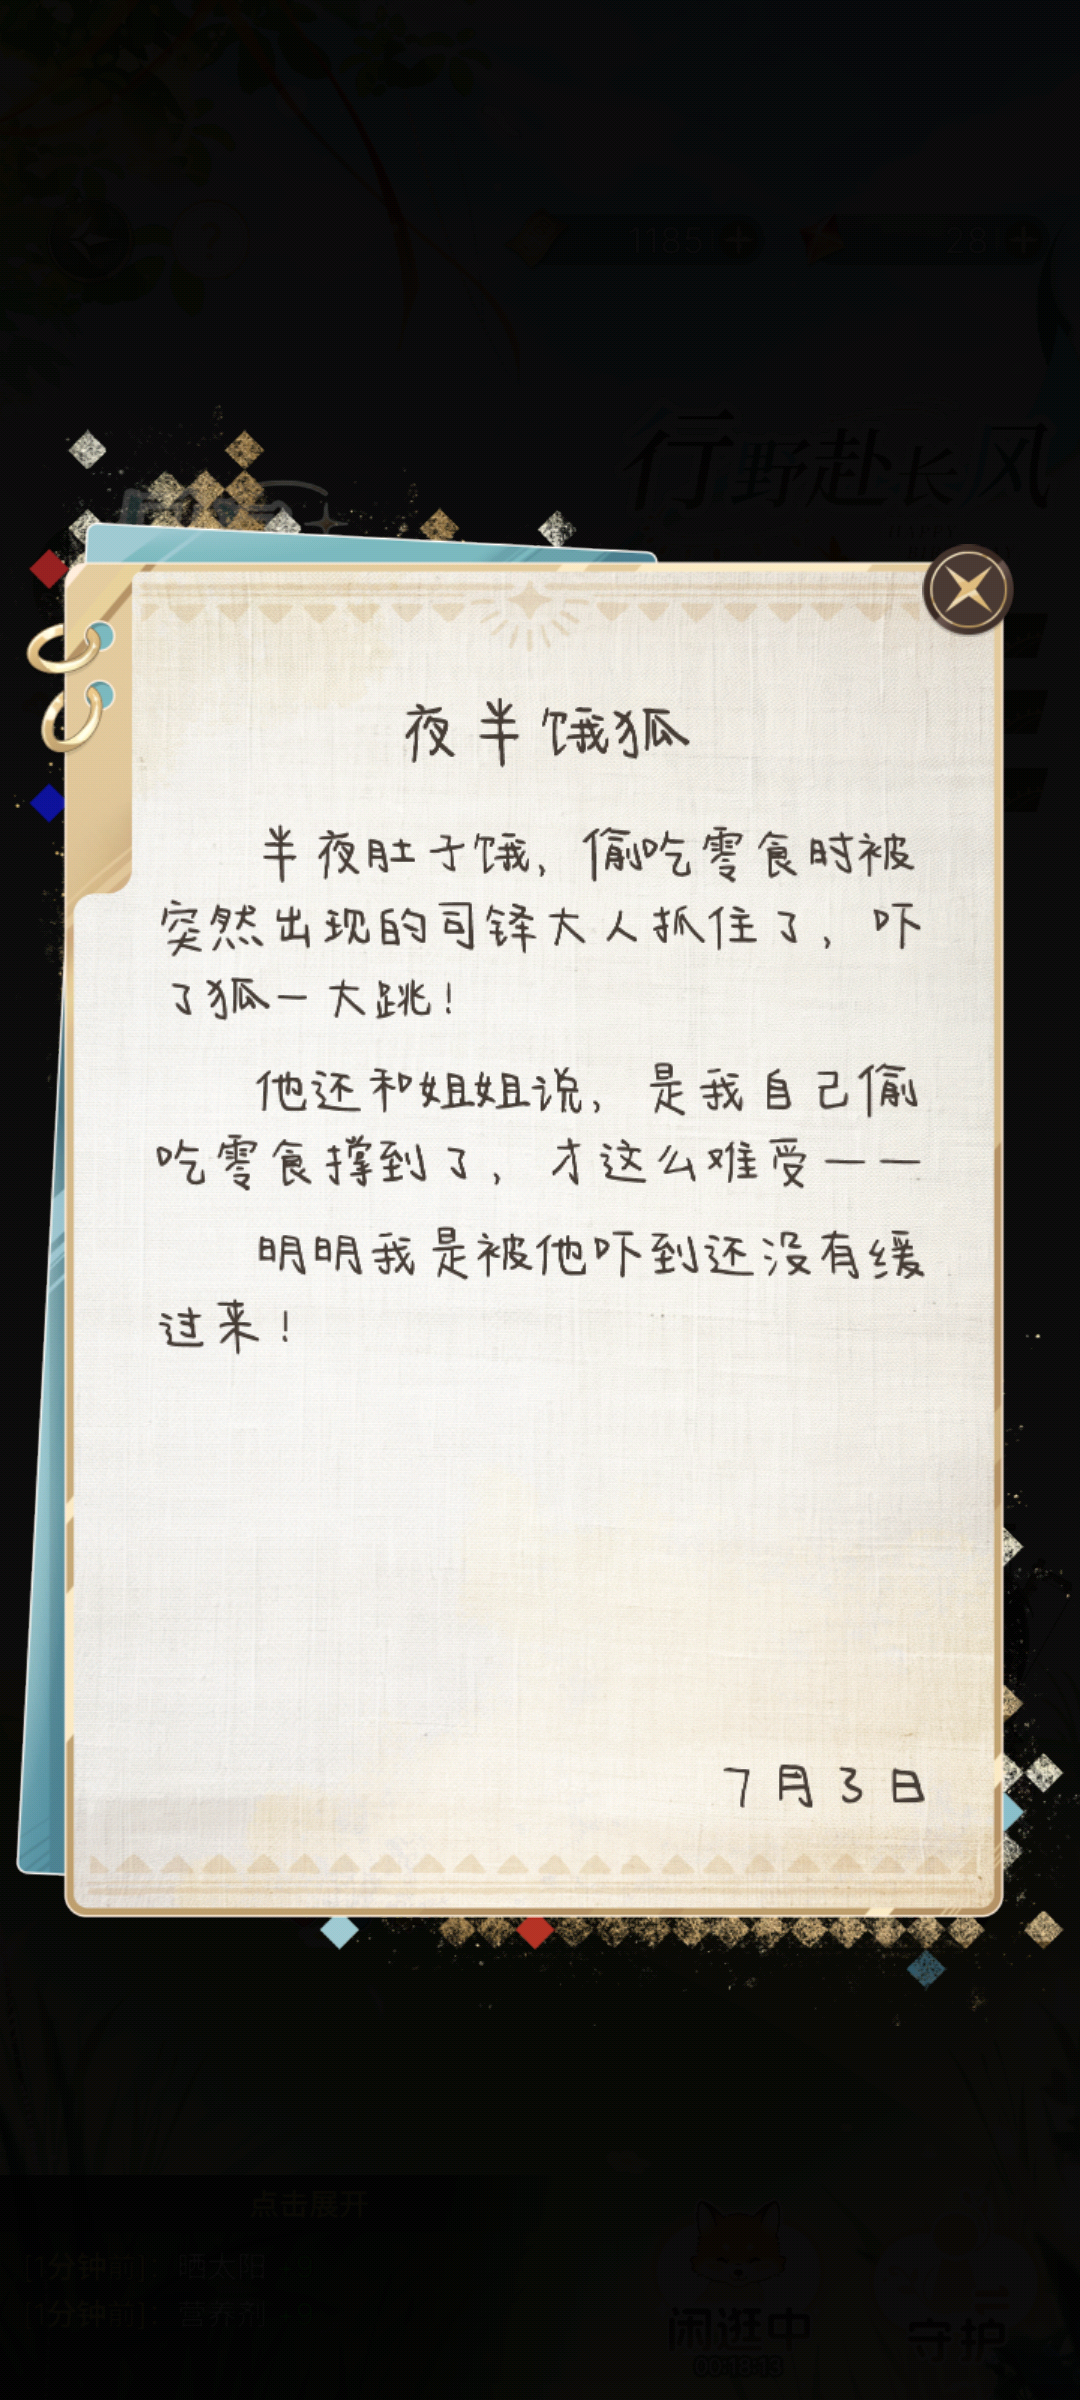 1185
28
行野赴长风
夜半饿狐
半夜肚子饿，偷吃零食时被
突然出现的司铎大人抓住了，吓
了狐一大跳！
他还和姐姐说，是我自己偷
吃零食撑到了，才这么难受——
明明我是被他吓到还没有缓
过来！
7月3日
点击展开
[1分钟前]：晒太阳
[1分钟前]：营养剂
闲逛中
守护
00:18:13